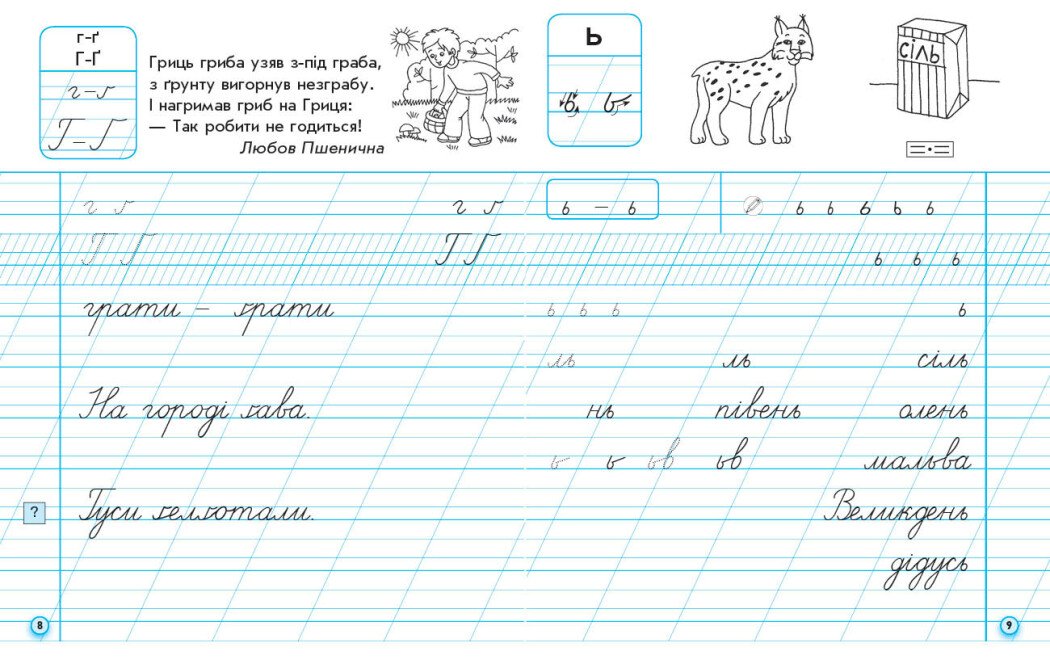 г-ґ
Г-Ґ
г-ґ
Г-Ґ
Гриць гриба узяв з-під граба,
з ґрунту вигорнув незграбу.
І нагримав гриб на Гриця:
— Так робити не годиться!
Любов Пшенична
г ґ г ґ
Г Ґ Г Ґ
грати – ґрати
На городі ґава.
?
Гуси ґелґотали.
8
Ь
ь ь
сіль
ь – ь ь ь ь ь ь
ь ь ь
ь ь ь ь
ль ль сіль
нь півень олень
ь ь ьв ьв мальва
Великдень
дідусь
9